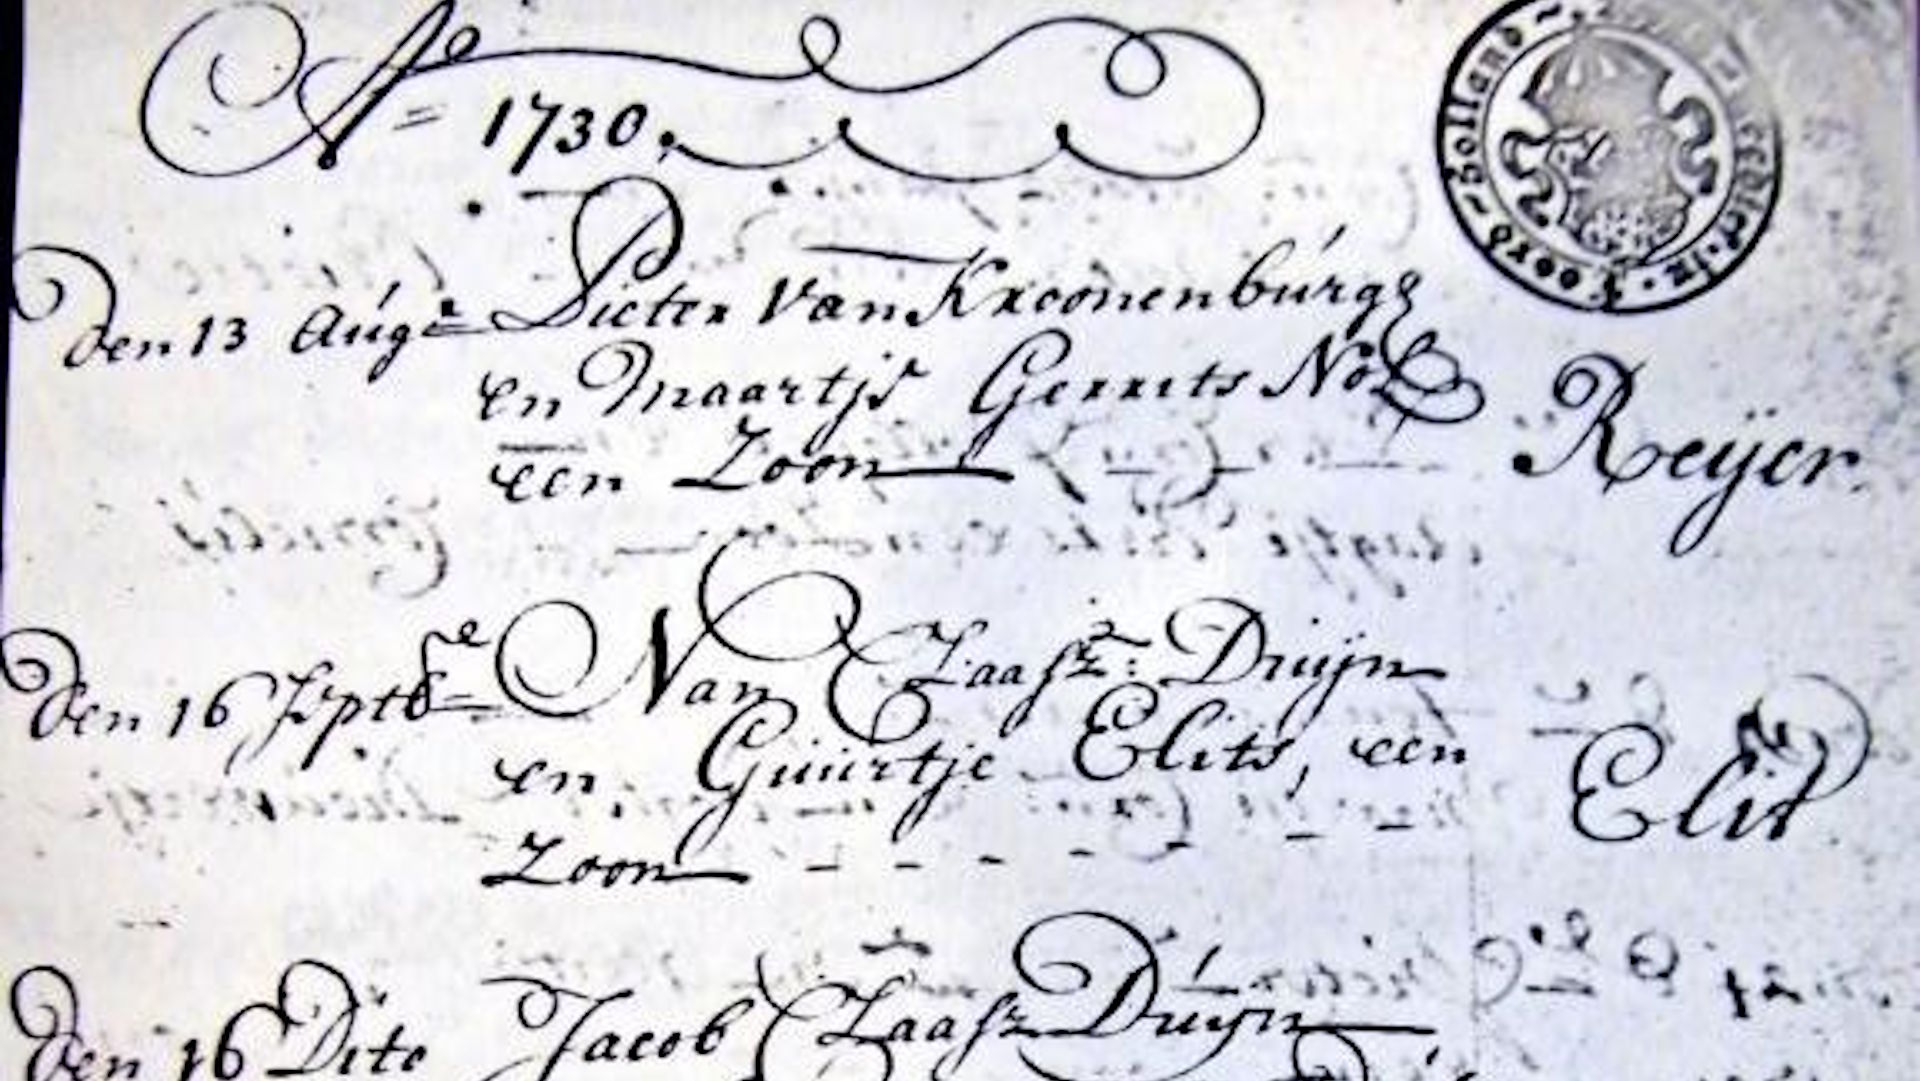 Ao = 1730.
Holland
Den 13 Augs Pieter Van Kroonenburg
en Maartje Gerrits Nol
een Zoon Reijer.
Den 16 Septbre Nan Claasz: Duijn
en Guurtje Elits, een
Zoon Elit
Den 16 Dito Jacob Claasz Duijn